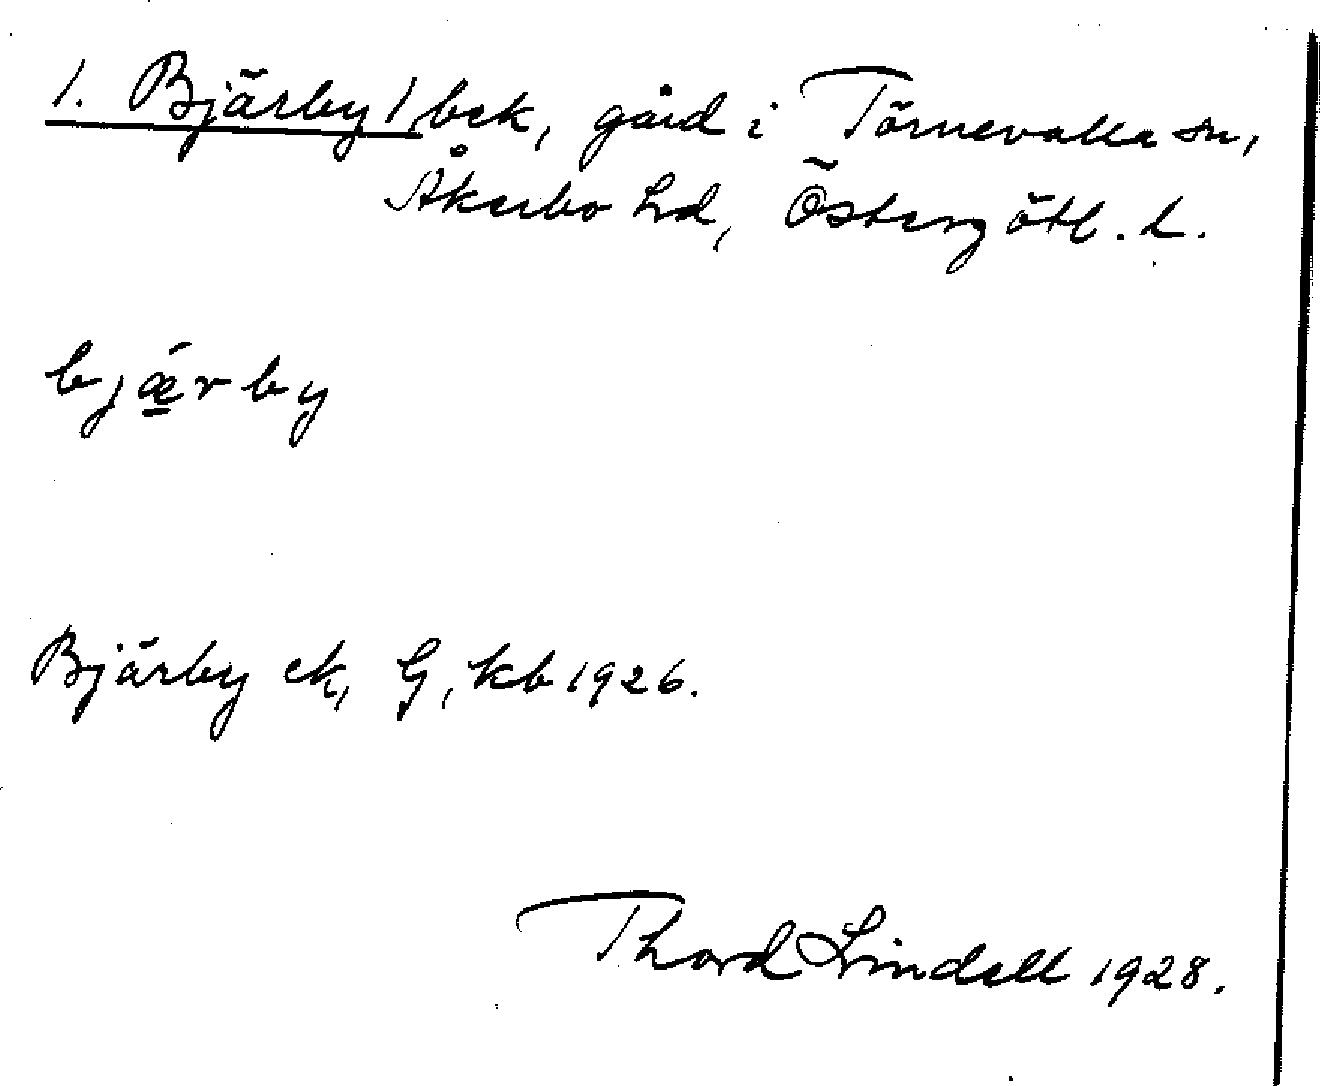 1. Bjärby 1, bek, gård i Törnevalla sn,
Åkerbo hd, Östergötl. l.
bjǽ̱rby
Bjärby ek, G, kb 1926.
Thord Lindell 1928.